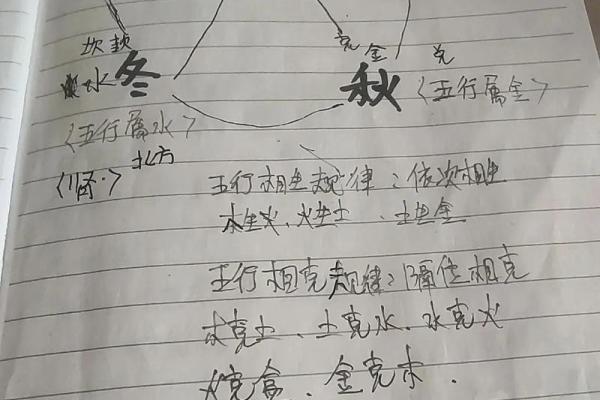 坎
克 金 兑
水 冬 秋 〈五行属金〉
〈五行属水〉
〈肾·〉 北方
五行相生规律：依次相生
木生火、火生土、土生金
五行相克规律：隔位相克
木克土、土克水、水克火
火克金、金克木.